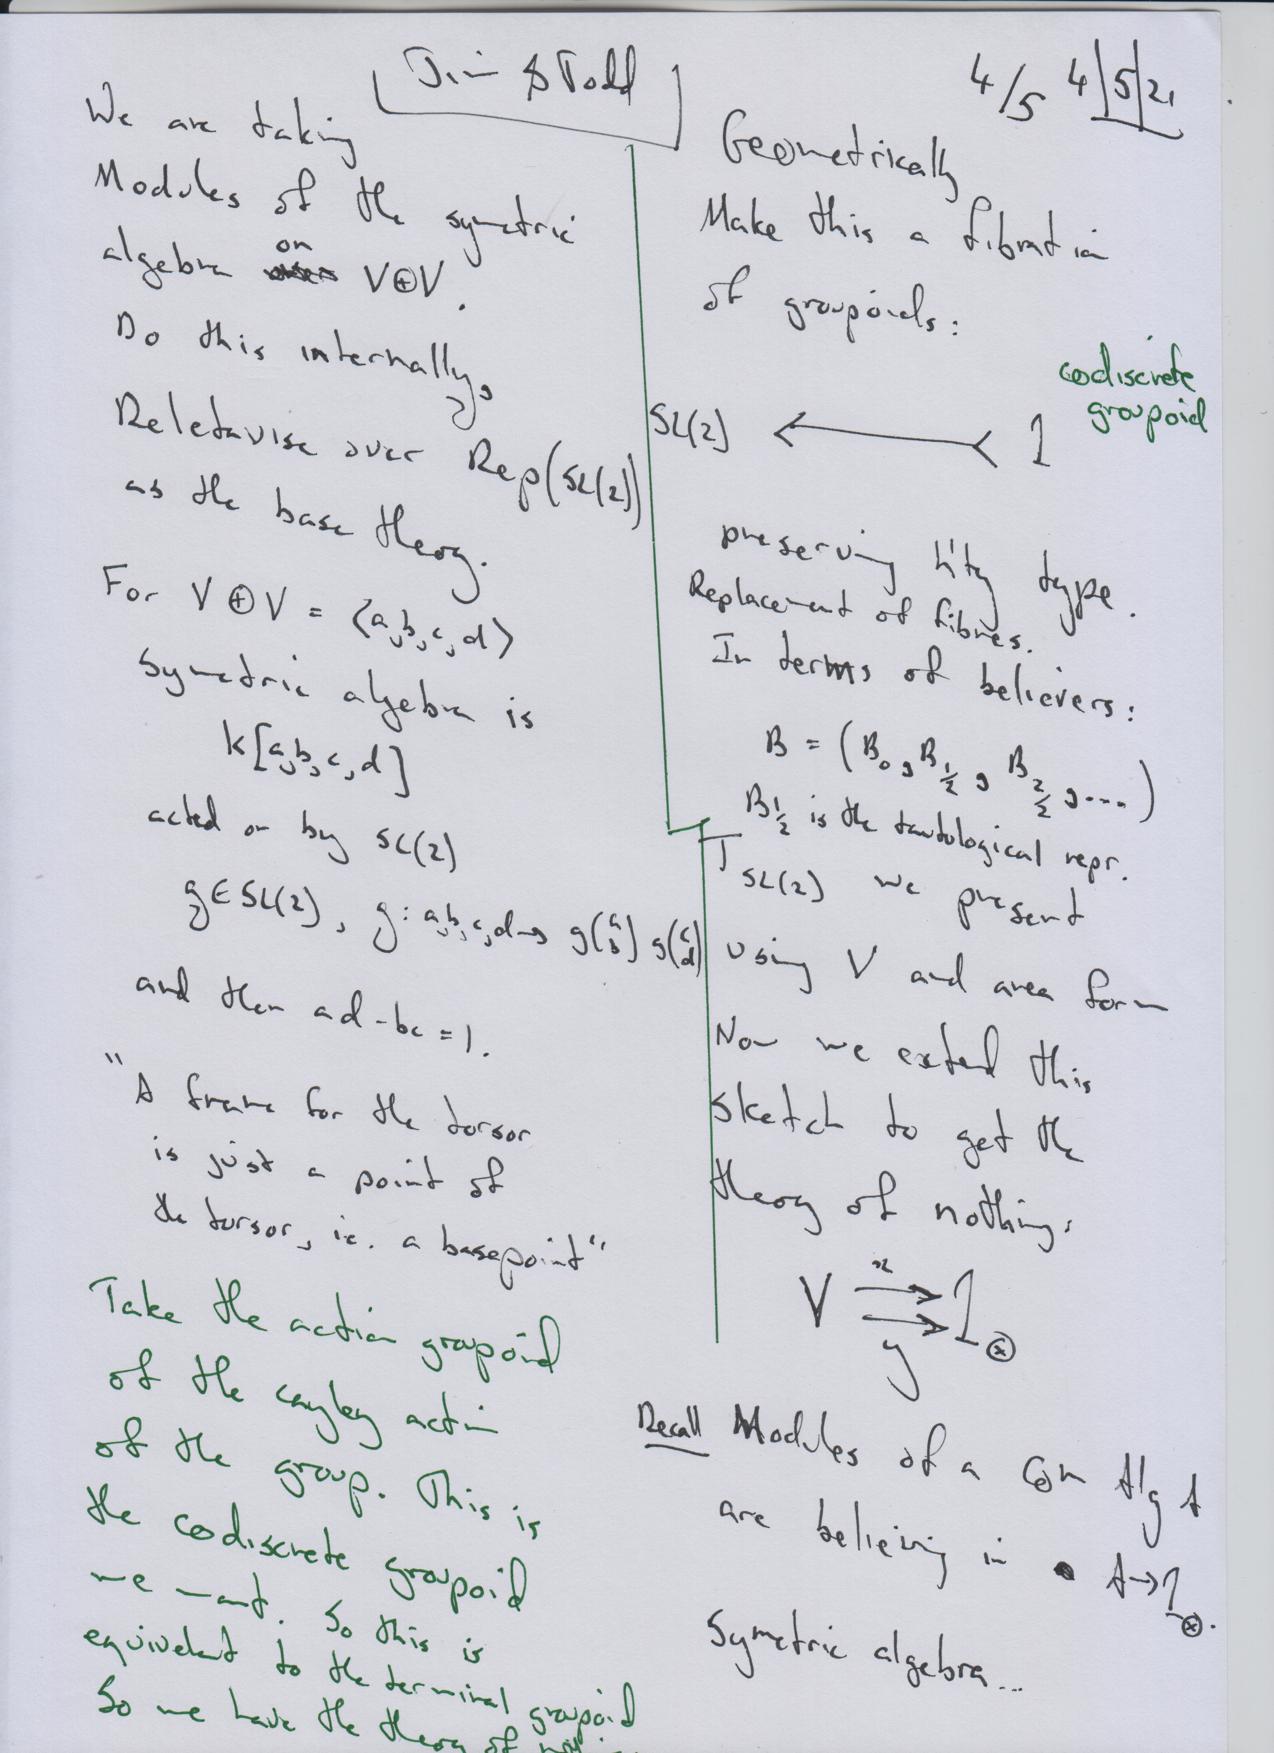 Jim & Todd
4/5 4|5|21
We are taking
Modules of the symetric
algebra on V⊕V.
Do this internally,
Reletavise over Rep(SL(2))
as the base theory.
For V⊕V = ⟨a,b,c,d⟩
Symetric algebra is
k[a,b,c,d]
acted on by SL(2)
g∈SL(2), g: a,b,c,d→ g(a b) g(c d)
and then ad-bc=1.
"A frame for the torsor
is just a point of
the torsor, ie. a basepoint"
Take the action groupoid
of the cayley action
of the group. This is
the codiscrete groupoid
we want. So this is
equivalent to the terminal groupoid
So we have the theory of
Geometrically
Make this a fibration
of groupoids:
codiscrete
groupoid
SL(2) ← 1
preserving h'ty type.
Replacement of fibres.
In terms of believers:
B = (B₀, B½, B2/2, ...)
B½ is the tautological repr.
T SL(2) we present
using V and area form
Now we extend this
sketch to get the
theory of nothing:
x
V ⇉ 1⊗
y
Recall Modules of a Com Alg A
are believing in A→1⊗.
Symetric algebra...